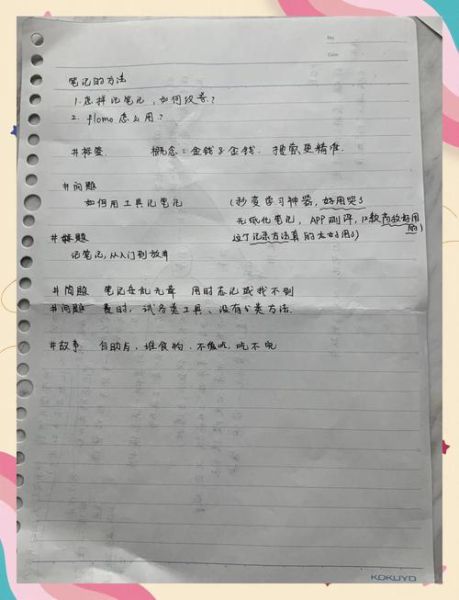 No.
Date
笔记的方法
1. 怎样记笔记，如何改善？
2. flomo 怎么用？
#标签 概念：金钱&金钱. 搜索更精准.
#问题
如何用工具记笔记 (秒变学习神器，好用哭了
无纸化笔记，APP测评，12款高效好用的)
#解题 这个记录方法真的太好用了)
记笔记，从入门到放弃
#问题 笔记杂乱无章 用时忘记或找不到
#问题 费时，试各类工具、没有分类方法.
#故事 自助占，堆食物，不慢吃，吃不完
KOKUYO